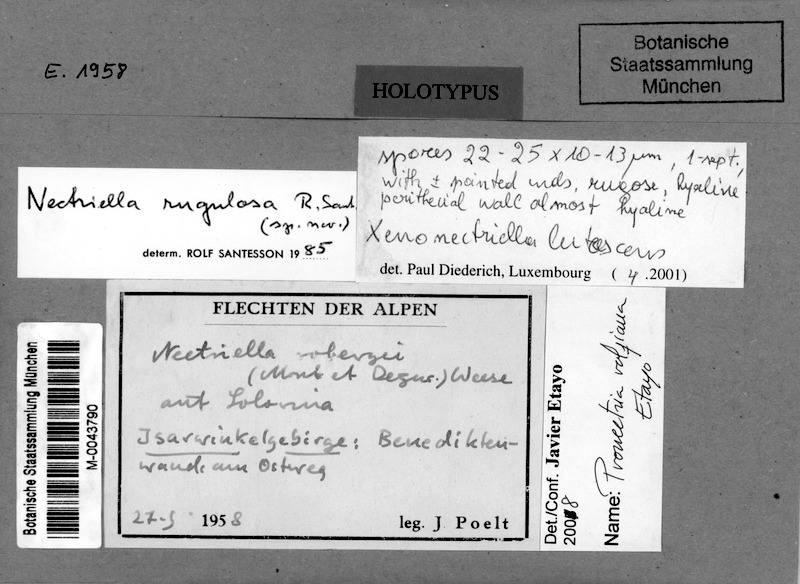 E. 1958
HOLOTYPUS
Botanische
Staatssammlung
München
Nectriella rugulosa R. Sant.
(sp. nov.)
determ. ROLF SANTESSON 1985
spores 22-25 x 10-13 µm, 1-sept.,
with ± pointed ends, rugose, hyaline
perithecial wall almost hyaline
Xenonectriella lutescens
det. Paul Diederich, Luxembourg (4.2001)
FLECHTEN DER ALPEN
Nectriella robergei
(Mont et Desm.) Weese
auf Solorina
Isarwinkelgebirge: Benedikten-
wand: am Ostweg
27-5 1958
leg. J. Poelt
Botanische Staatssammlung München
M-0043790
Det./Conf. Javier Etayo
2008
Name: Pronectria
Etayo